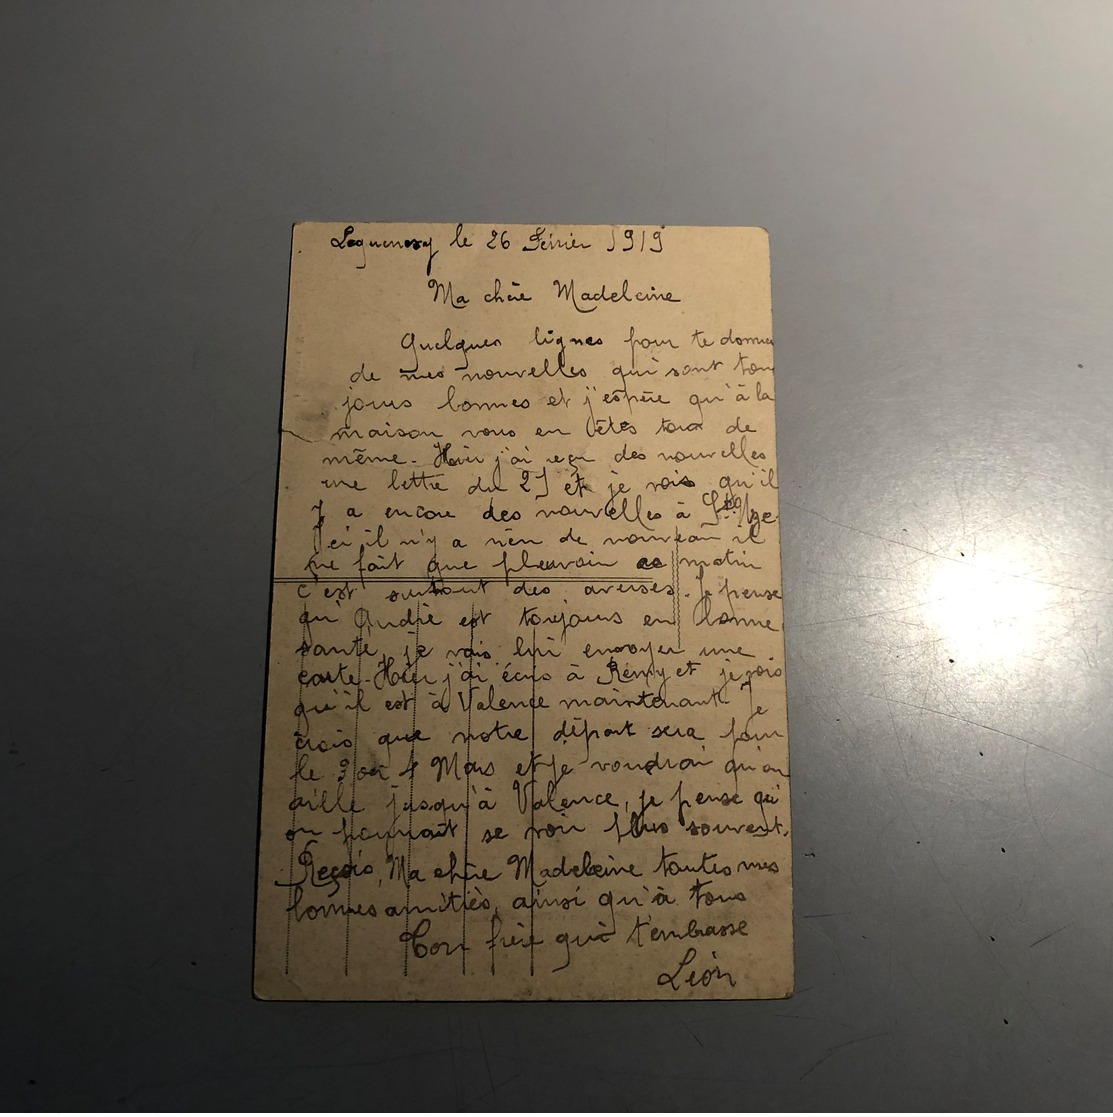 le 26 Février 1919
Ma chère Madeleine
Quelques lignes pour te donner
de mes nouvelles qui sont tou
jours bonnes et j'espère qu'à la
maison vous en êtes tous de
même. Hier j'ai reçu des nouvelles
une lettre du 21 et je vois qu'il
y a encore des nouvelles à St Uze.
Ici il n'y a rien de nouveau il
ne fait que pleuvoir ce matin
c'est surtout des averses. Je pense
qu'André est toujours en bonne
santé, je vais lui envoyer une
carte. Hier j'ai écris à Rémy et je vois
qu'il est à Valence maintenant. Je
crois que notre départ sera pour
le 3 ou 4 Mars et je voudrai qu'on
aille jusqu'à Valence, je pense qu'
on pourrait se voir plus souvent.
Reçois, Ma chère Madeleine toutes mes
bonnes amitiés, ainsi qu'à tous
Ton frère qui t'embrasse
Léon